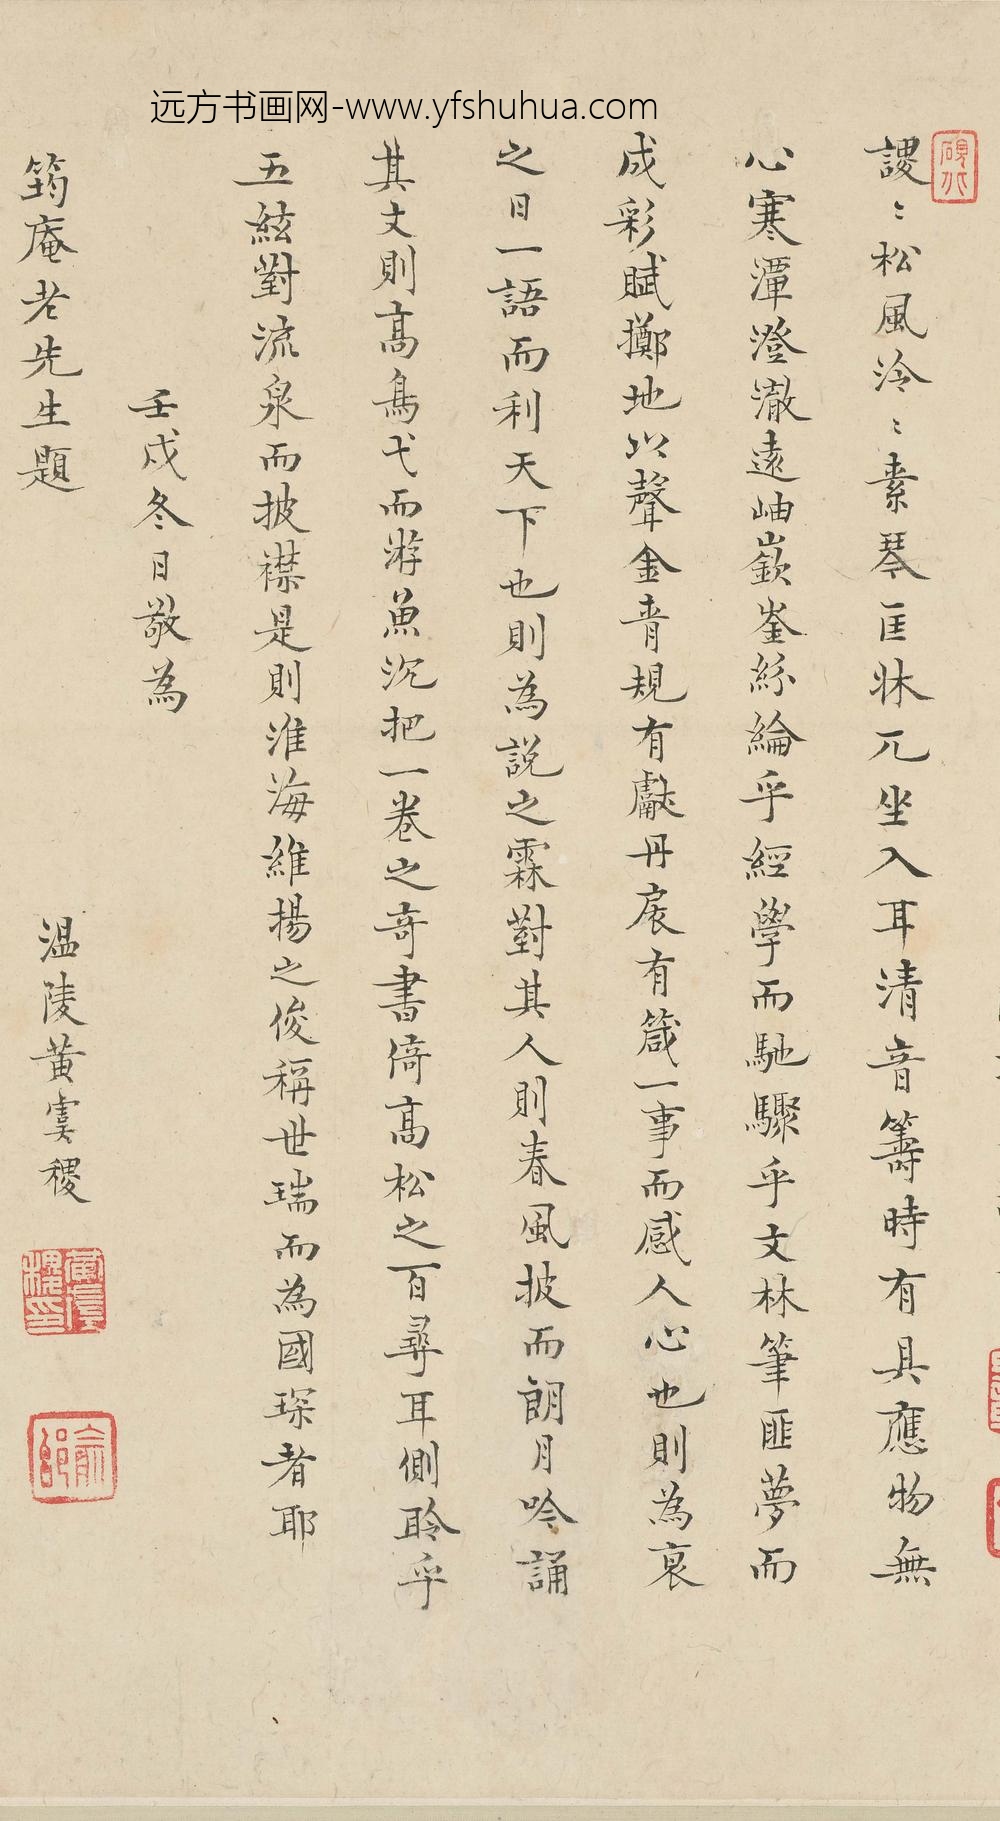 远方书画网-www.yfshuhua.com
謖〻松風泠〻素琴匡牀兀坐入耳清音籌時有具應物無
心寒潭澄澈遠岫嶔崟絲綸乎經學而馳驟乎文林筆匪夢而
成彩賦擲地以聲金青規有獻丹扆有箴一事而感人心也則為衷
之日一語而利天下也則為說之霖對其人則春風披而朗月吟誦
其文則高鳥弋而游魚沉把一卷之奇書倚高松之百尋耳側聆乎
五絃對流泉而披襟是則淮海維揚之俊稱世瑞而為國琛者耶
壬戌冬日敬為
筠庵老先生題
溫陵黃虞稷
黃虞稷印
俞邰